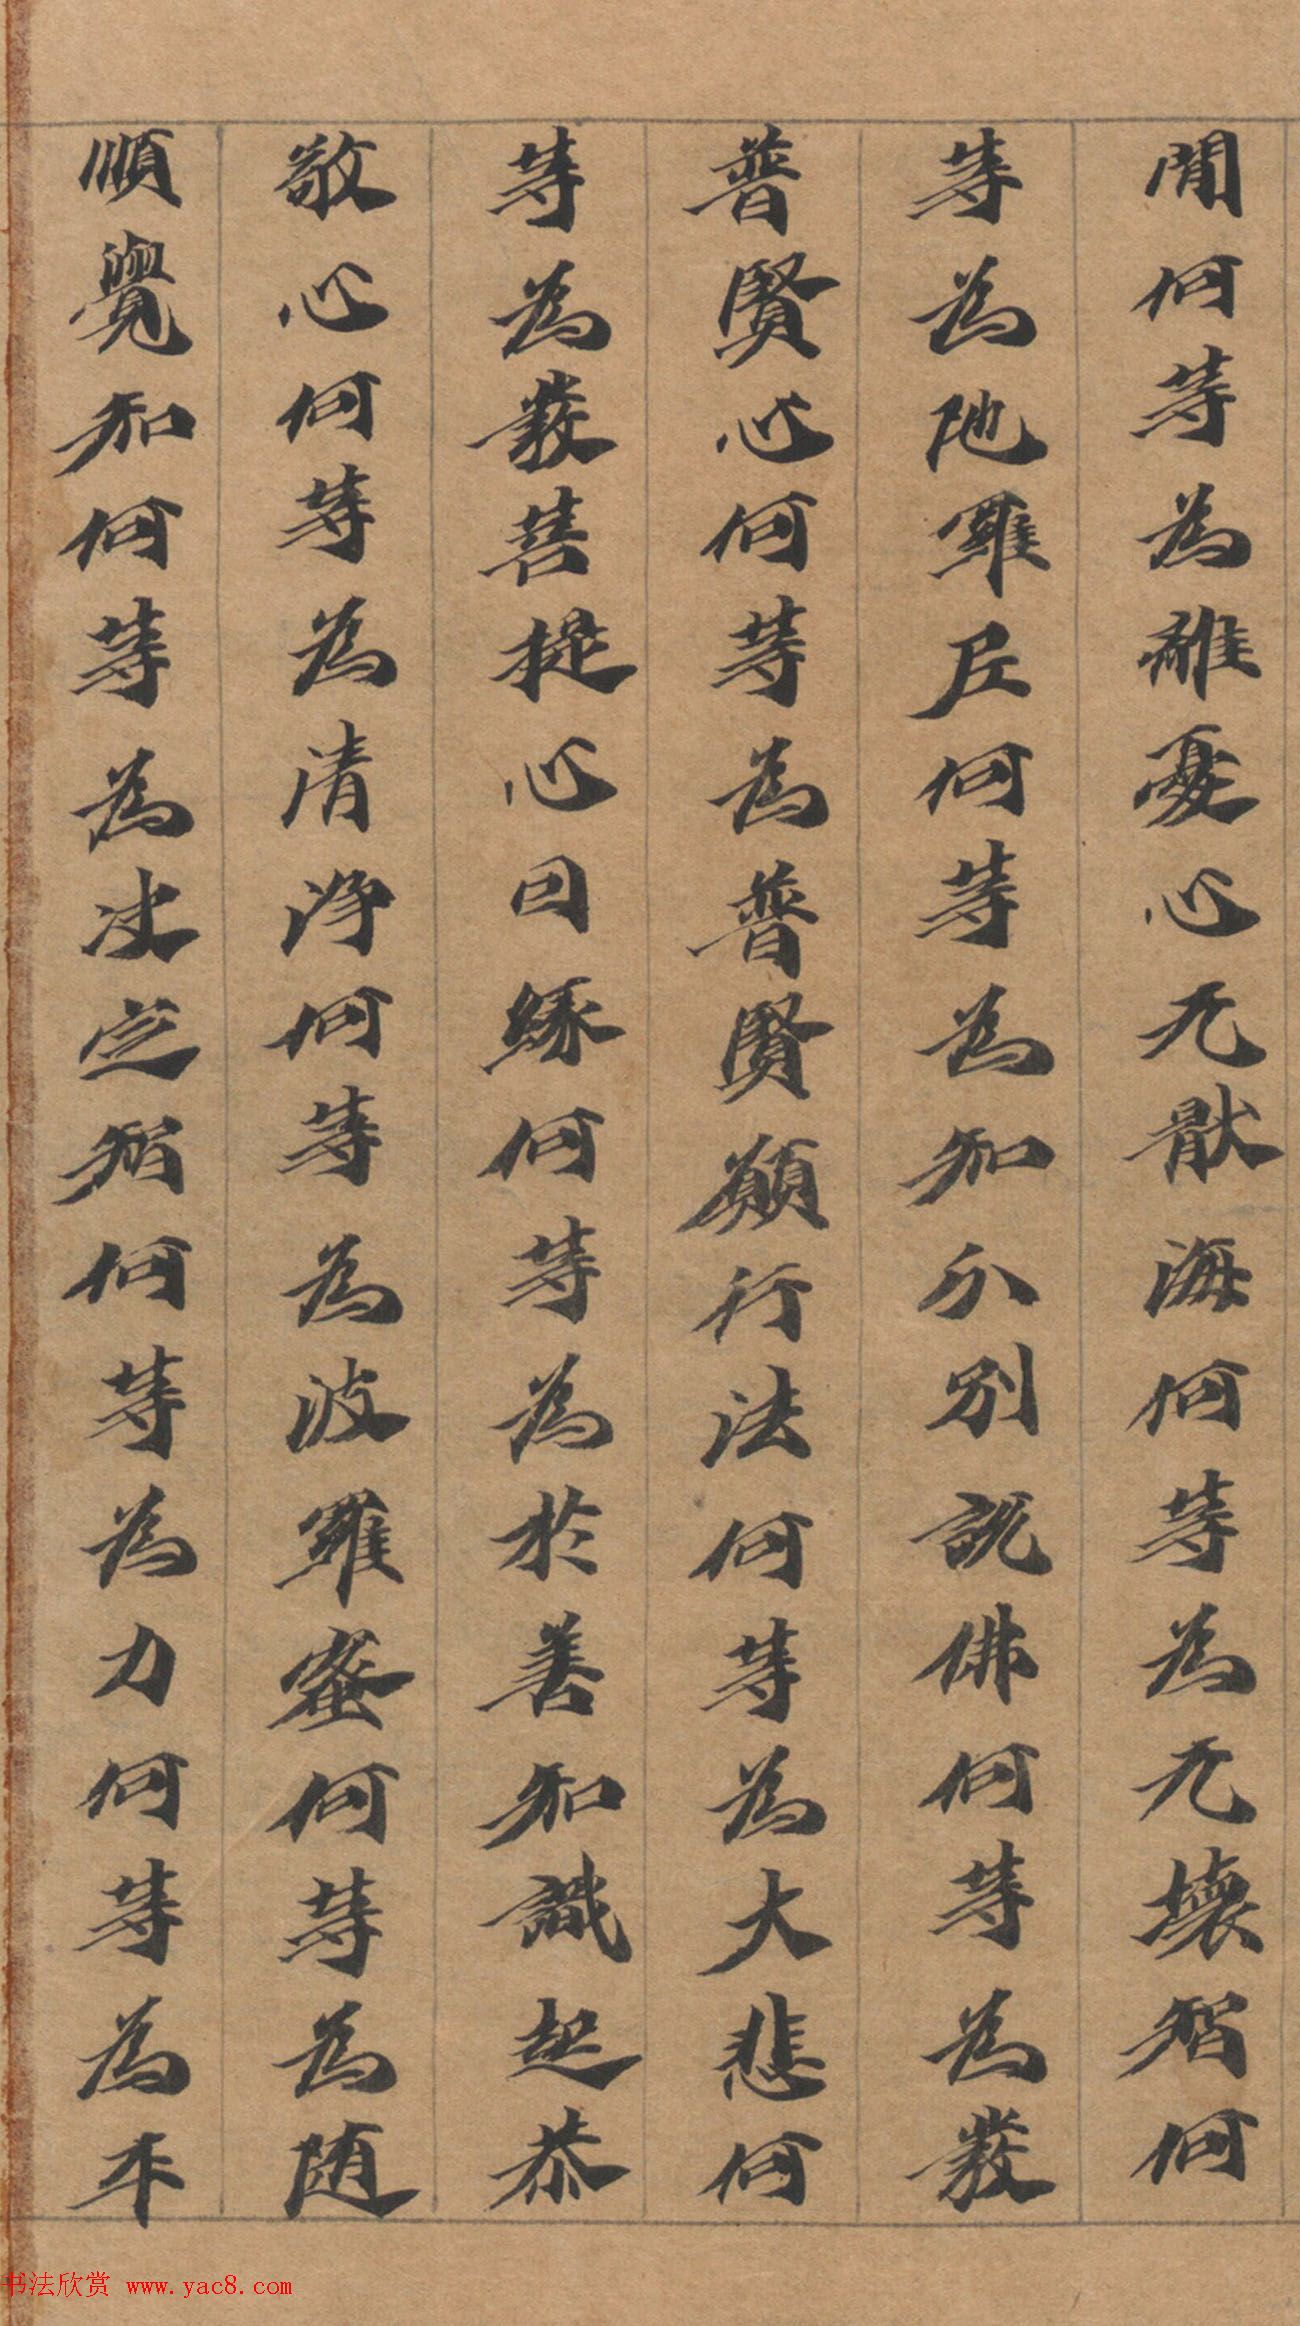 閒何等為離憂心无猒海何等為无壞智何
等為陁羅尼何等為知分別說佛何等為發
普賢心何等為普賢願行法何等為大悲何
等為發菩提心因緣何等為於善知識起恭
敬心何等為清淨何等為波羅蜜何等為随
順覺知何等為决定智何等為力何等為平
书法欣赏 www.yac8.com